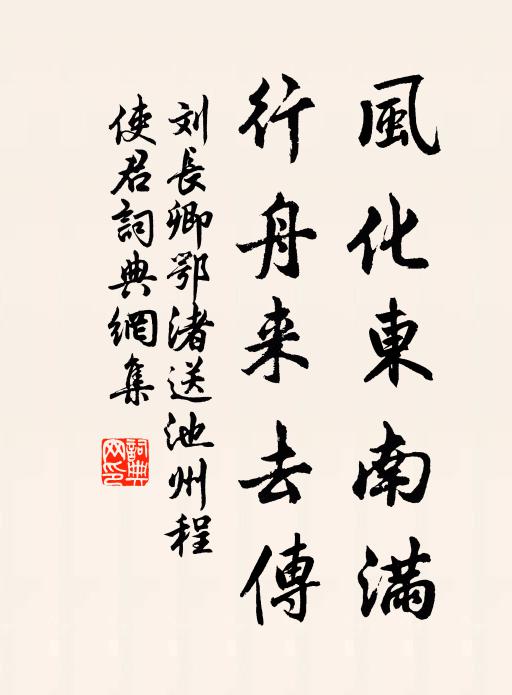 風化東南满
行舟来去傳
刘長卿鄂渚送池州程
使君詞典網集
詞典
网印